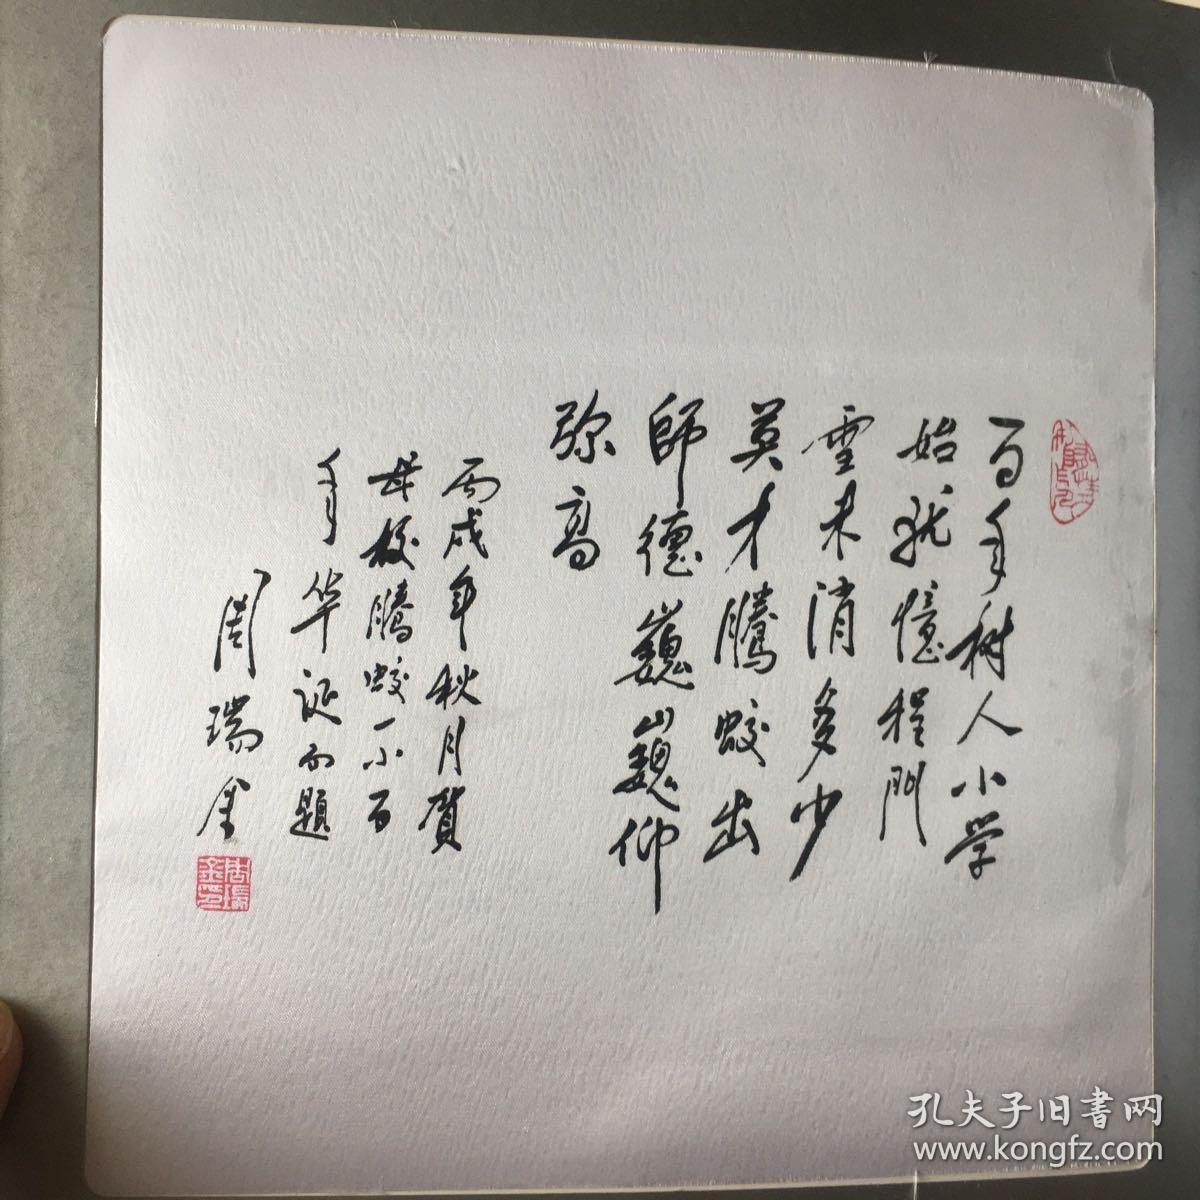 百年树人小学
始犹憶程門
雪未消多少
英才騰蛟出
師德巍巍仰
弥高
丙戌年秋月賀
母校騰蛟一小百
年华诞而題
周瑞金
孔夫子旧書网
www.kongfz.com